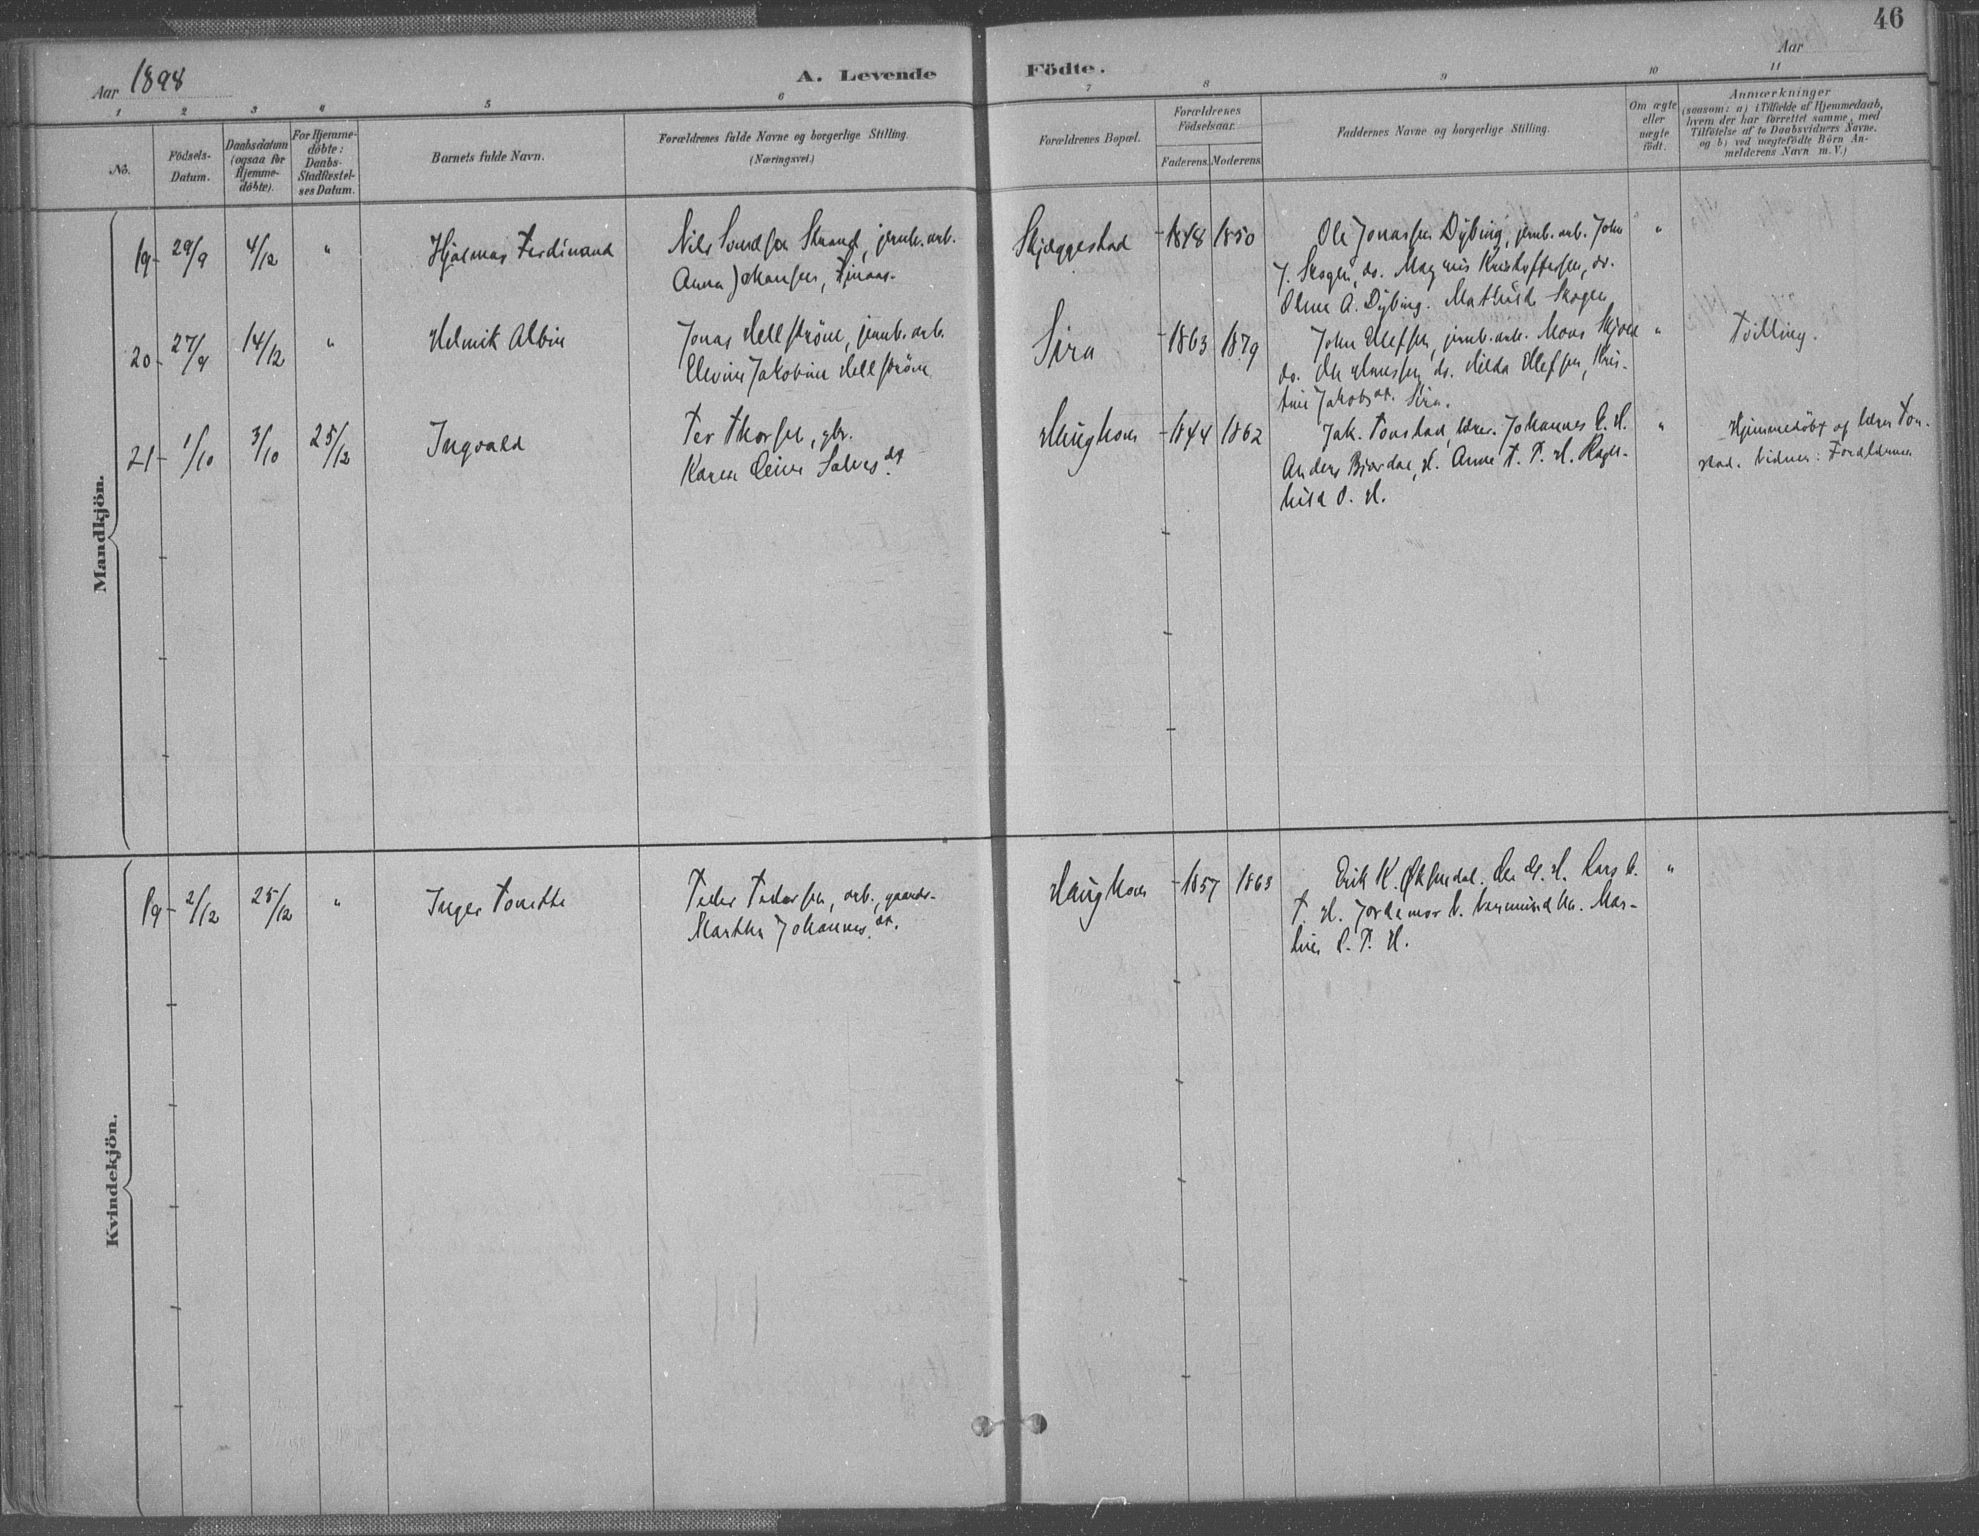 46
Aar 1898
A. Levende Födte.
Aar
1 2 3 4 5 6 7 8 9 10 11
No.
Födsels-Datum.
Daabsdatum (ogsaa for Hjemme-döbte).
For Hjemme-döbte: Daabs-Stadfæstel-ses Datum.
Barnets fulde Navn.
Forældrenes fulde Navne og borgerlige Stilling.
(Næringsvei.)
Forældrenes Bopæl.
Forældrenes Födselsaar.
Faderens. Moderens.
Faddernes Navne og borgerlige Stilling.
Om ægte eller uægte födt.
Anmærkninger
(saasom: a) i Tilfælde af Hjemmedaab,
hvem der har forrettet samme, med
Tilföielse af to Daabsvidners Navne,
og b) ved uægtefödte Börn An-
melderens Navn m. V.)
Mandkjön.
19 29/9 4/12 " Hjalmar Ferdinand
Nils Strand, jernb.arb.
Anna Johansen,
Skjeggestad 1848 1850
Ole Jonassen Dybing, jernb.arb. John
J. Skogen, do. Magnus Kristoffersen, do.
Oline A. Dybing. Mathilde Skogen
"
20 27/9 14/12 " Helmik Albin
Jonas Hellström, jernb.arb.
Elevine Jakobine Hellström
Sira 1863 1879
John Olefsen, jernb.arb. Mons
do. do. Hilda Olefsen, Kris-
tine Jakobsdt. Sira.
" Tvilling.
21 1/10 3/10 25/12 Ingvald
Per Thorsen, gbr.
Karen Salvesdt.
Haughom 1844 1862
Jak. Tonstad, lærer. Johannes H.
Anders Bjordal, H. Anne T. P. H. Ragn-
hild O. H.
"
Hjemmedöbt af lærer Ton-
stad. Vidner: Forældrene
Kvindekjön.
19 2/12 25/12 " Inger Tonette
Peder Pedersen, arb.,
Marthe Johannesdt.
Haughom 1857 1863
Erik K. Øksendal. H. Lars
T. H. Jordemor
P. H.
"